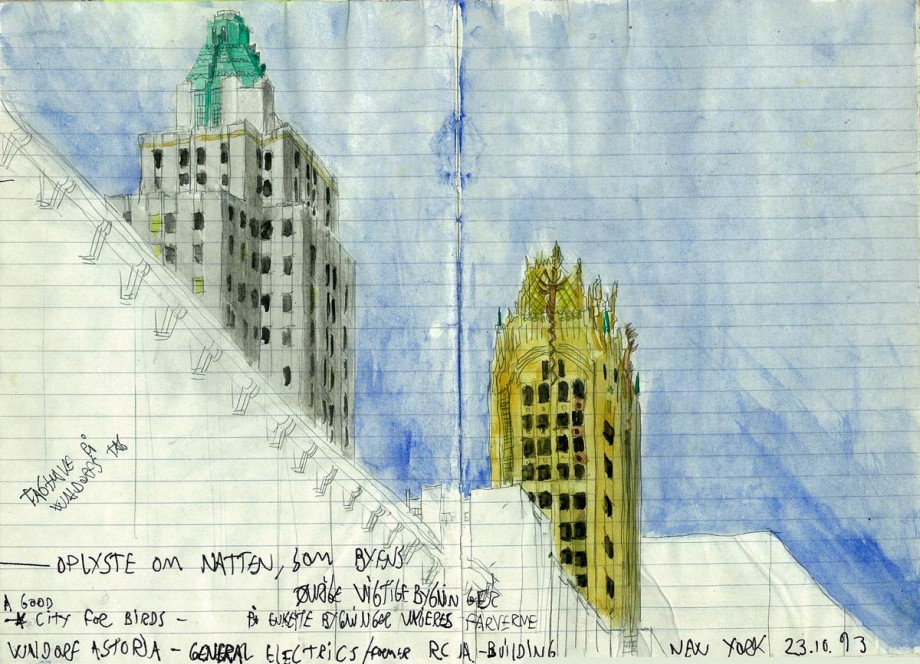 TAGHAVE PÅ
WALDORFS TAG
OPLYSTE OM NATTEN, SOM BYENS
ØVRIGE VIGTIGE BYGNINGER
A GOOD
CITY FOR BIRDS - PÅ ENKELTE BYGNINGER VARIERES FARVERNE
WALDORF ASTORIA - GENERAL ELECTRICS/FORMER RCA-BUILDING NEW YORK 23.10.93